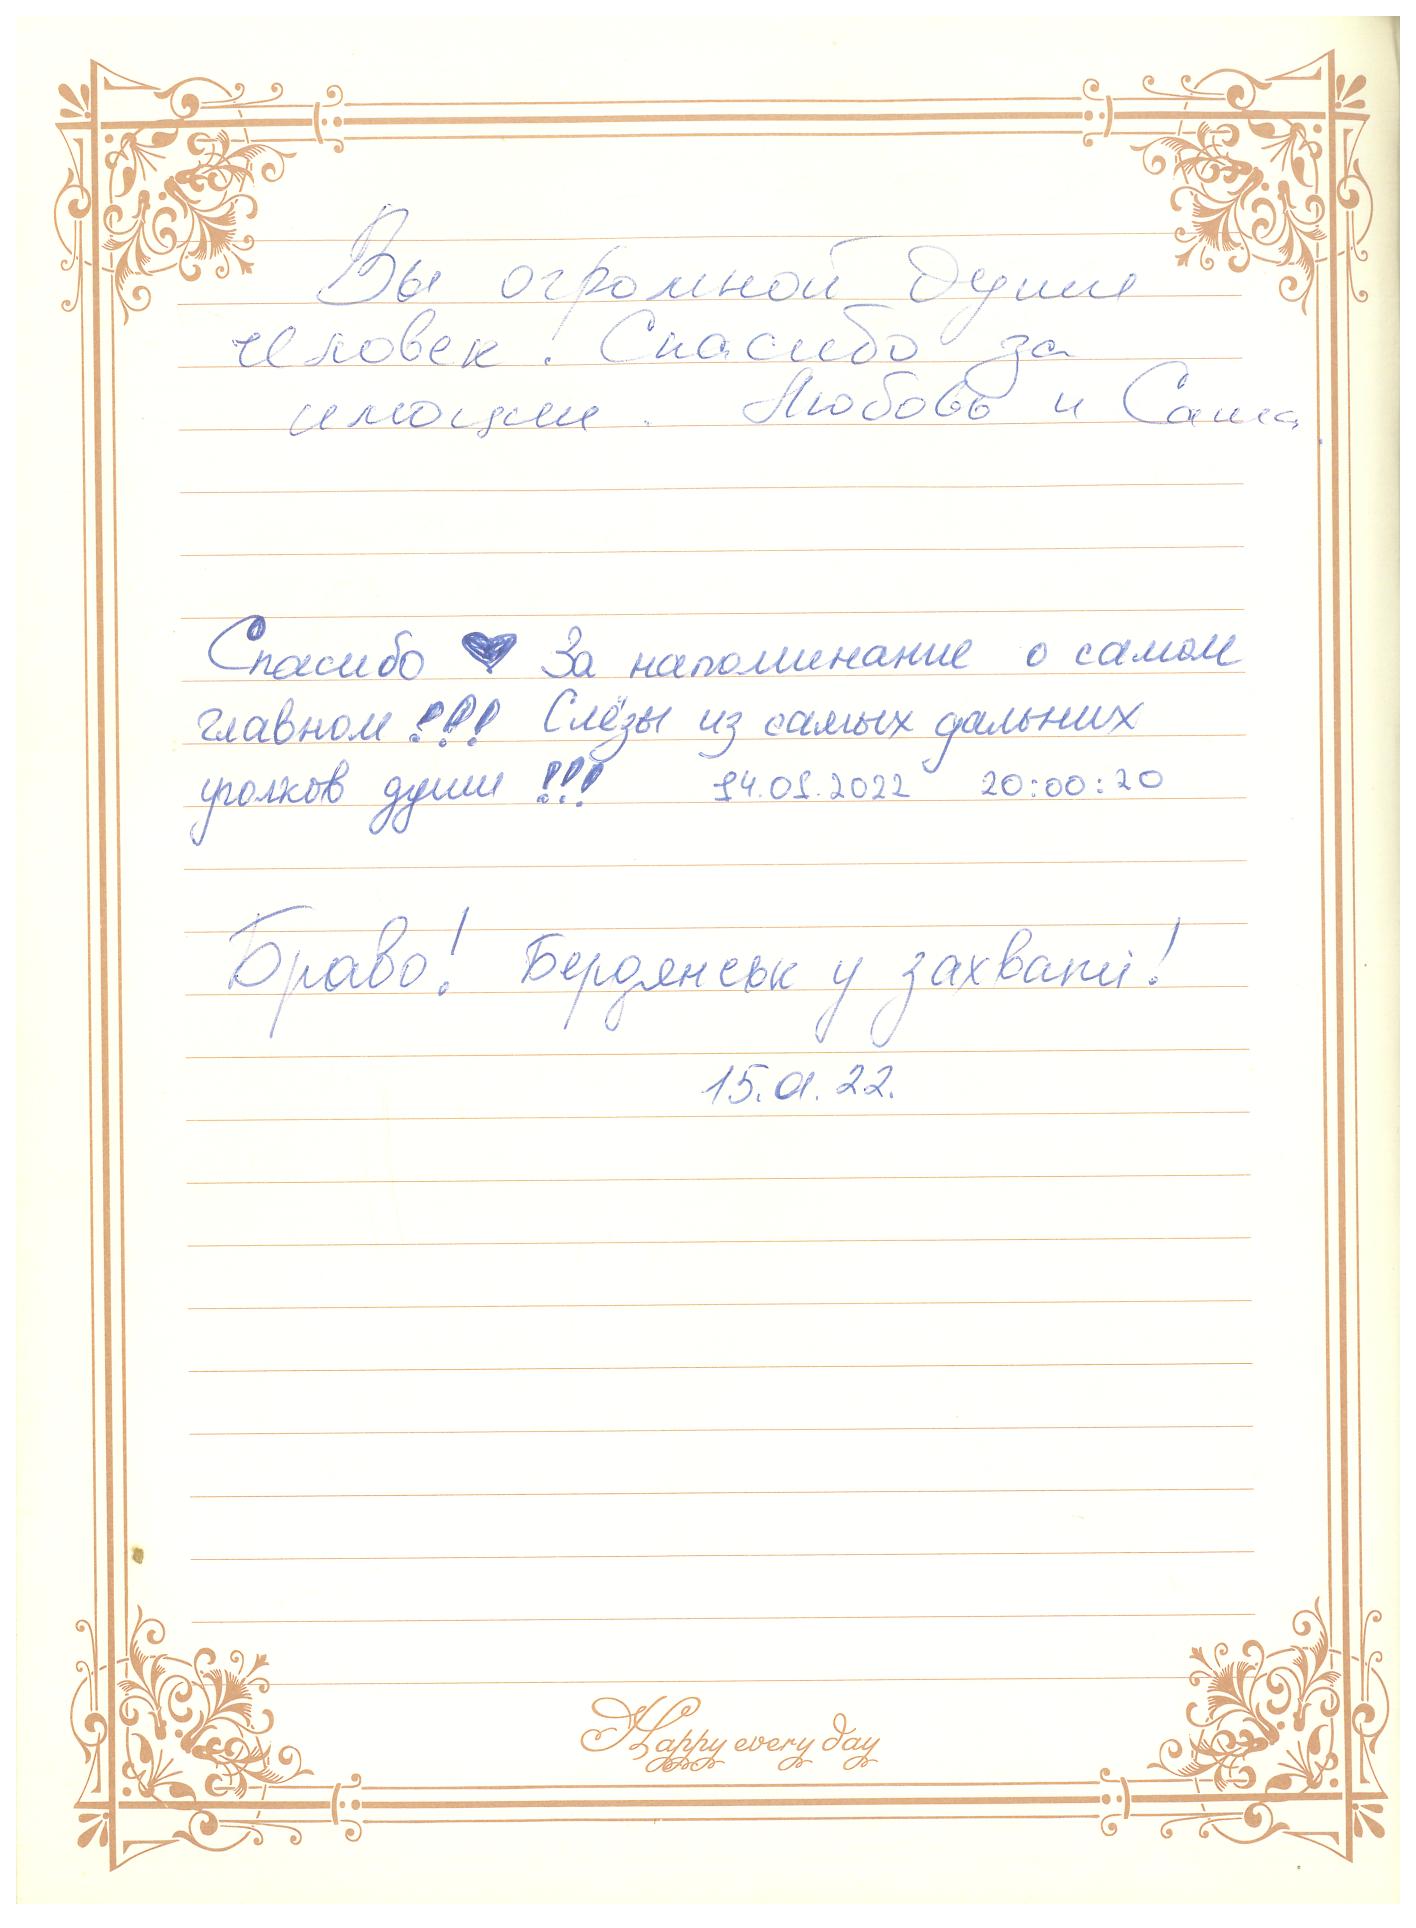 Вы огромной души
человек! Спасибо за
имоции. Любовь и Саша.
Спасибо ♥ За напоминание о самом
главном!!! Слёзы из самых дальних
уголков души!!! 14.01.2022 20:00:20
Браво! Бердянськ у захваті!
15.01.22.
Happy every day